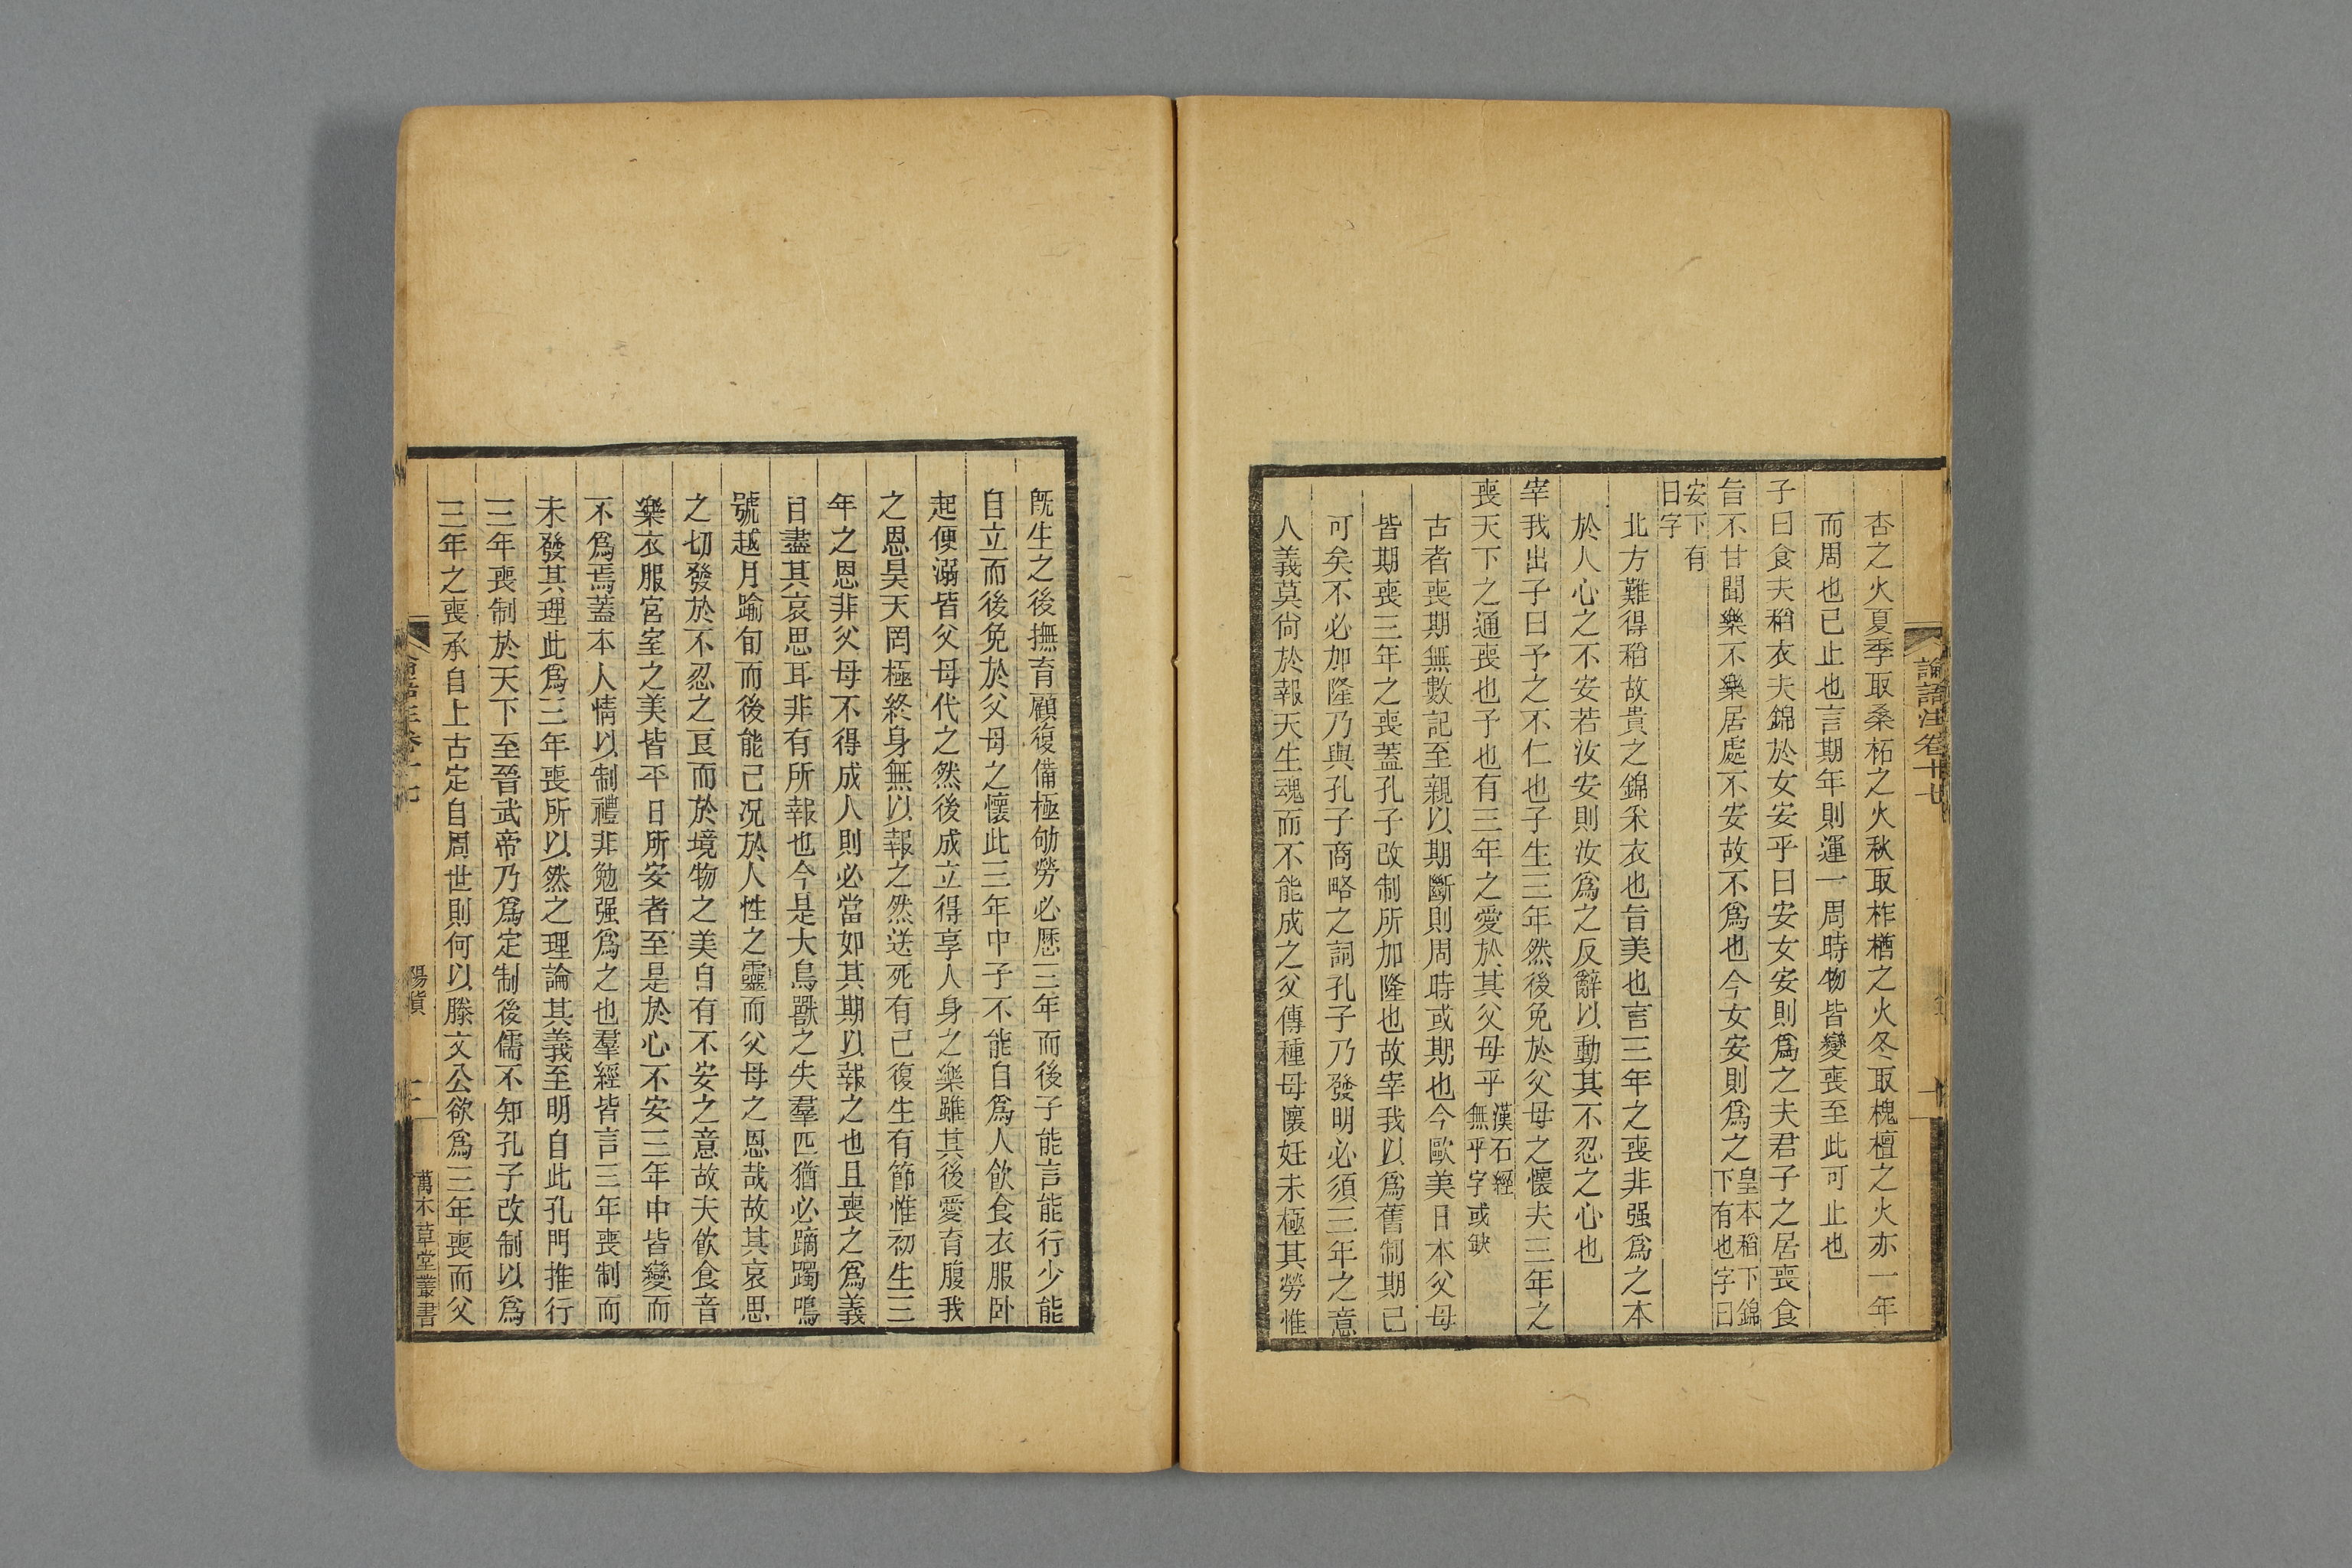 論語注卷十七
杏之火夏季取桑柘之火秋取柞楢之火冬取槐檀之火亦一年
而周也已止也言期年則運一周時物皆變喪至此可止也
子曰食夫稻衣夫錦於女安乎曰安女安則爲之夫君子之居喪食
旨不甘聞樂不樂居處不安故不爲也今女安則爲之皇本稻下錦
下有也字曰
安下有
曰字
北方難得稻故貴之錦采衣也旨美也言三年之喪非强爲之本
於人心之不安若汝安則汝爲之反辭以動其不忍之心也
宰我出子曰予之不仁也子生三年然後免於父母之懷夫三年之
喪天下之通喪也予也有三年之愛於其父母乎漢石經
無乎字或缺
古者喪期無數記至親以期斷則周時或期也今歐美日本父母
皆期喪三年之喪蓋孔子改制所加隆也故宰我以爲舊制期已
可矣不必加隆乃與孔子商略之詞孔子乃發明必須三年之意
人義莫尙於報天生魂而不能成之父傳種母懷妊未極其勞惟
旣生之後撫育顧復備極劬勞必歷三年而後子能言能行少能
自立而後免於父母之懷此三年中子不能自爲人飮食衣服卧
起便溺皆父母代之然後成立得享人身之樂雖其後愛育腹我
之恩昊天罔極終身無以報之然送死有已復生有節惟初生三
年之恩非父母不得成人則必當如其期以報之也且喪之爲義
自盡其哀思耳非有所報也今是大鳥獸之失羣匹猶必蹢躅鳴
號越月踰旬而後能已况於人性之靈而父母之恩哉故其哀思
之切發於不忍之良而於境物之美自有不安之意故夫飮食音
樂衣服宮室之美皆平日所安者至是於心不安三年中皆變而
不爲焉蓋本人情以制禮非勉强爲之也羣經皆言三年喪制而
未發其理此爲三年喪所以然之理論其義至明自此孔門推行
三年喪制於天下至晉武帝乃爲定制後儒不知孔子改制以爲
三年之喪承自上古定自周世則何以滕文公欲爲三年喪而父
陽貨
萬木草堂叢書